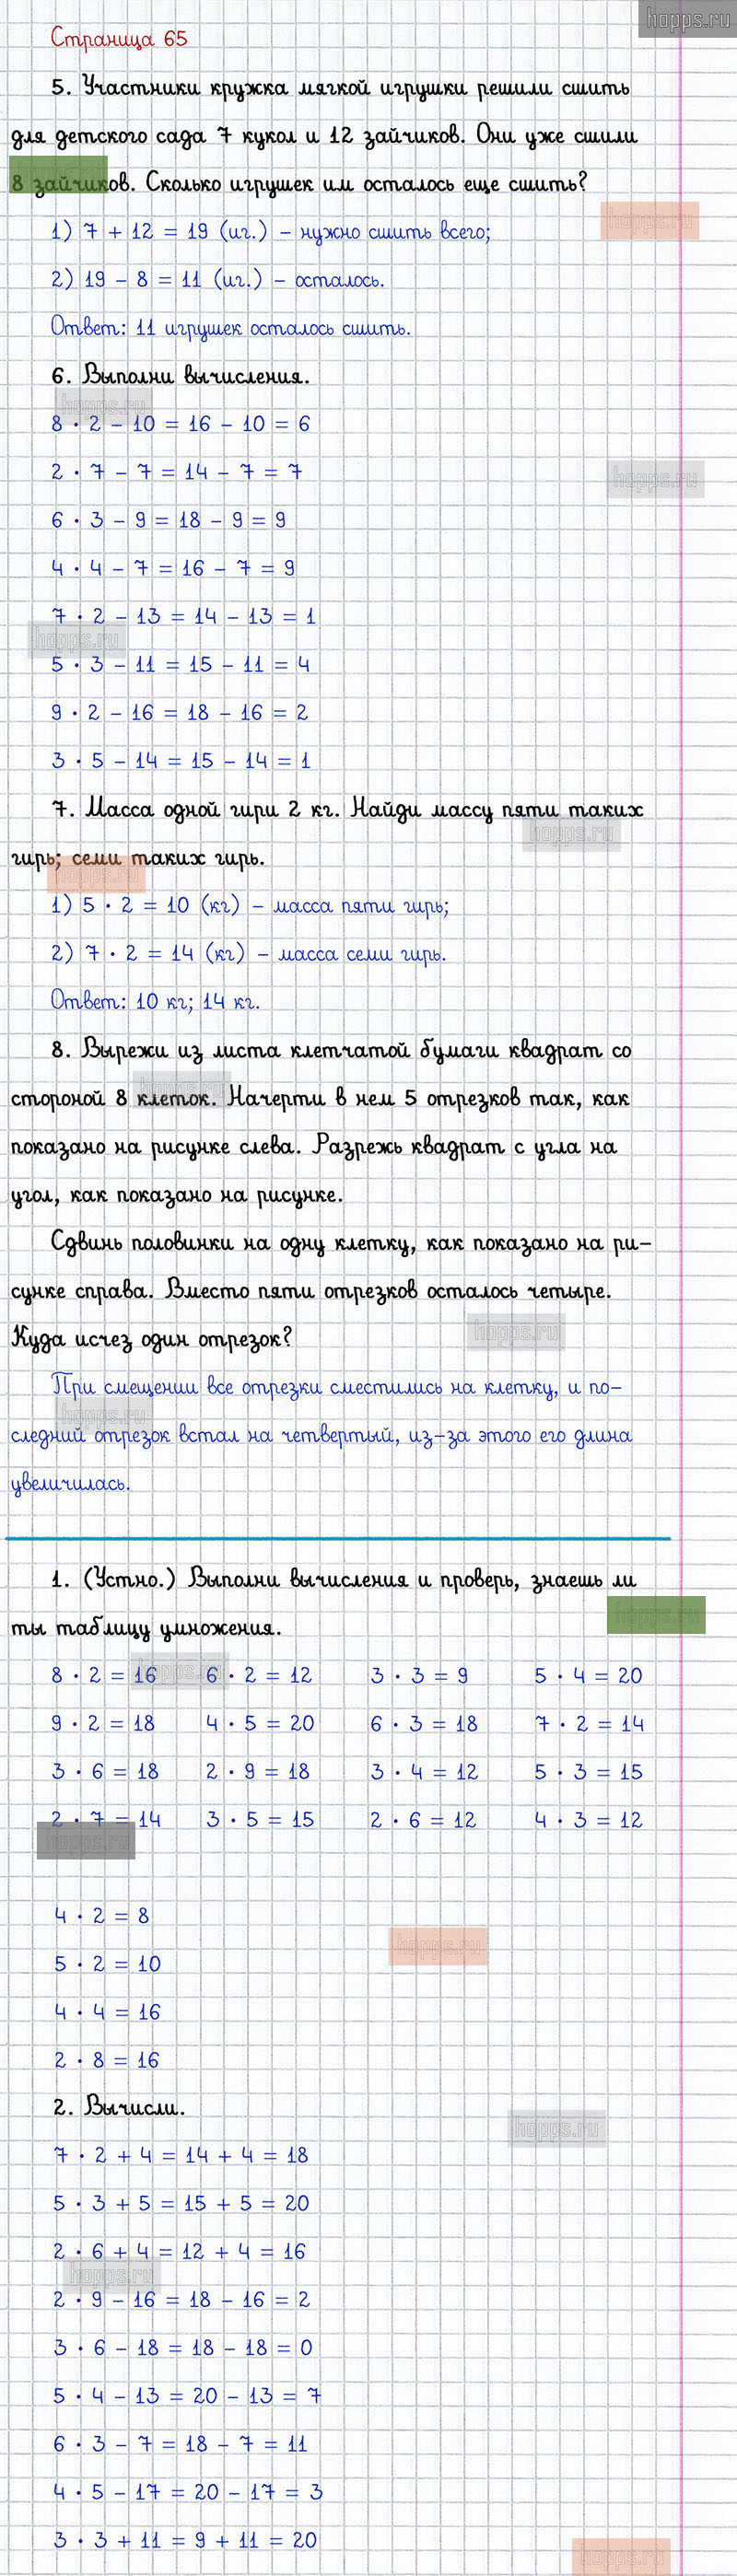 hopps.ru
Страница 65
5. Участники кружка мягкой игрушки решили сшить
для детского сада 7 кукол и 12 зайчиков. Они уже сшили
8 зайчиков. Сколько игрушек им осталось еще сшить?
hopps.ru
1) 7 + 12 = 19 (иг.) – нужно сшить всего;
2) 19 – 8 = 11 (иг.) – осталось.
Ответ: 11 игрушек осталось сшить.
6. Выполни вычисления.
hopps.ru
8 · 2 – 10 = 16 – 10 = 6
2 · 7 – 7 = 14 – 7 = 7
hopps.ru
6 · 3 – 9 = 18 – 9 = 9
4 · 4 – 7 = 16 – 7 = 9
7 · 2 – 13 = 14 – 13 = 1
hopps.ru
5 · 3 – 11 = 15 – 11 = 4
9 · 2 – 16 = 18 – 16 = 2
3 · 5 – 14 = 15 – 14 = 1
7. Масса одной гири 2 кг. Найди массу пяти таких
hopps.ru
гирь; семи таких гирь.
hopps.ru
1) 5 · 2 = 10 (кг) – масса пяти гирь;
2) 7 · 2 = 14 (кг) – масса семи гирь.
Ответ: 10 кг; 14 кг.
8. Вырежи из листа клетчатой бумаги квадрат со
hopps.ru
стороной 8 клеток. Начерти в нем 5 отрезков так, как
показано на рисунке слева. Разрежь квадрат с угла на
угол, как показано на рисунке.
Сдвинь половинки на одну клетку, как показано на ри–
сунке справа. Вместо пяти отрезков осталось четыре.
hopps.ru
Куда исчез один отрезок?
При смещении все отрезки сместились на клетку, и по–
hopps.ru
следний отрезок встал на четвертый, из–за этого его длина
увеличилась.
1. (Устно.) Выполни вычисления и проверь, знаешь ли
hopps.ru
ты таблицу умножения.
hopps.ru
8 · 2 = 16 6 · 2 = 12 3 · 3 = 9 5 · 4 = 20
9 · 2 = 18 4 · 5 = 20 6 · 3 = 18 7 · 2 = 14
3 · 6 = 18 2 · 9 = 18 3 · 4 = 12 5 · 3 = 15
2 · 7 = 14 3 · 5 = 15 2 · 6 = 12 4 · 3 = 12
hopps.ru
4 · 2 = 8
hopps.ru
5 · 2 = 10
4 · 4 = 16
2 · 8 = 16
2. Вычисли.
hopps.ru
7 · 2 + 4 = 14 + 4 = 18
5 · 3 + 5 = 15 + 5 = 20
2 · 6 + 4 = 12 + 4 = 16
hopps.ru
2 · 9 – 16 = 18 – 16 = 2
3 · 6 – 18 = 18 – 18 = 0
5 · 4 – 13 = 20 – 13 = 7
6 · 3 – 7 = 18 – 7 = 11
4 · 5 – 17 = 20 – 17 = 3
3 · 3 + 11 = 9 + 11 = 20
hopps.ru